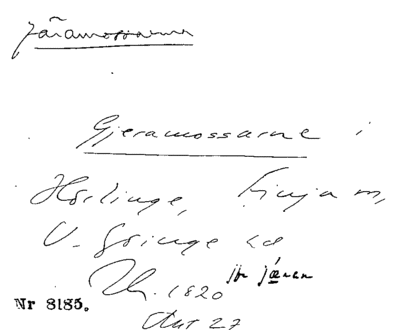 Järamossarne
Gjeramossarne i
Hörlinge, Finja m,
V. Göinge hd
1820 jfr jären
Nr 8185.
Akt 27